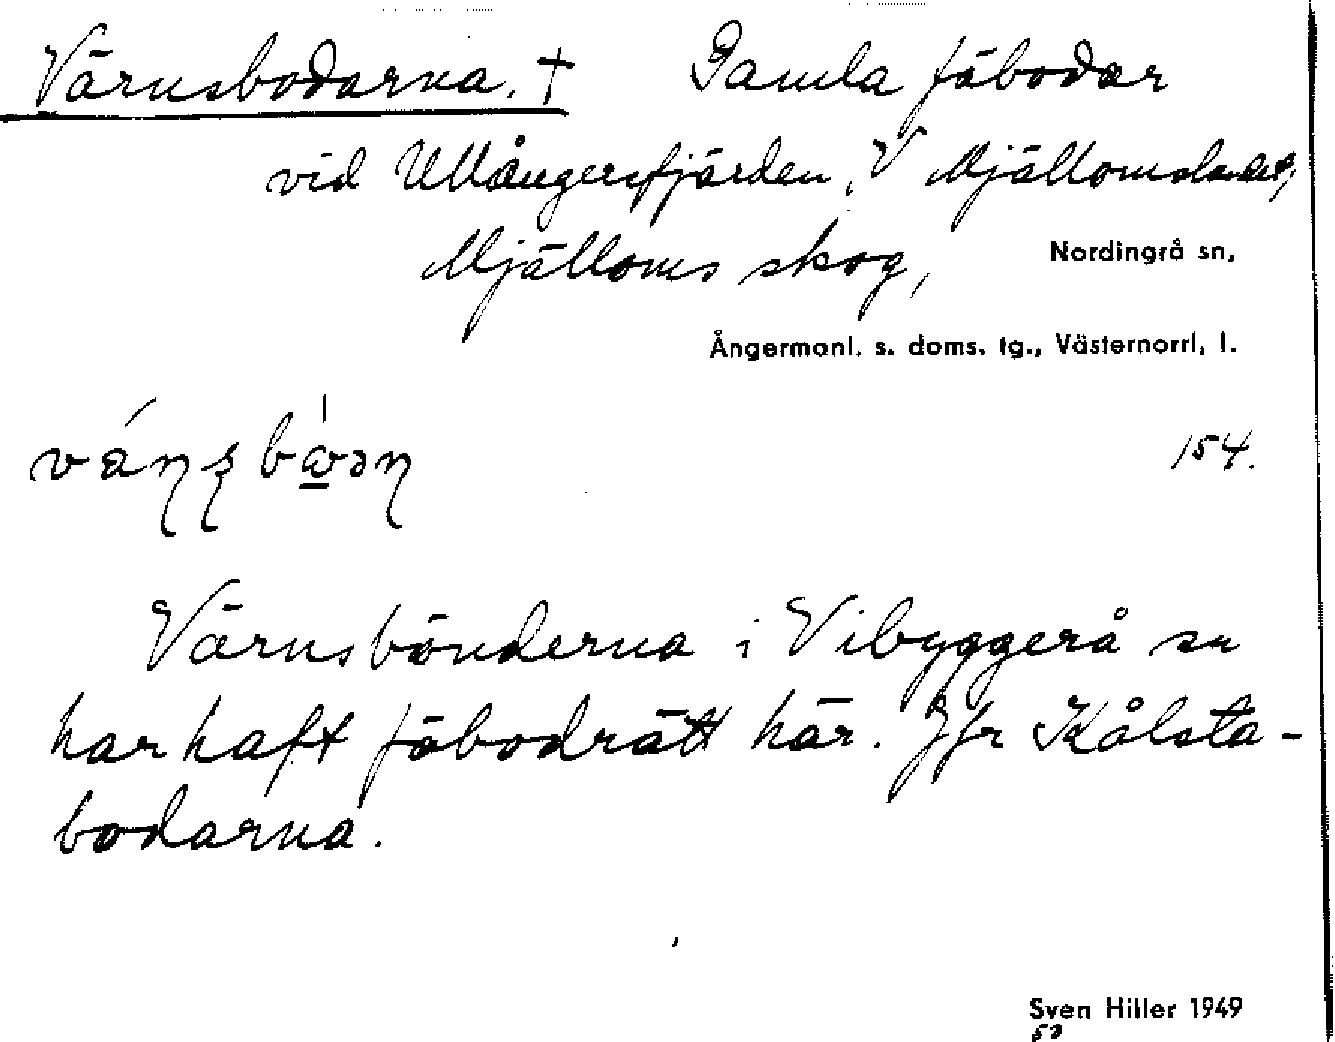 Värnsbodarna. † Gamla fäbodar
vid Ullångersfjärden, V Mjällomslandet,
Mjälloms skog, Nordingrå sn,
Ångermanl. s. doms. tg., Västernorrl. l.
154.
Värnsbönderna i Vibyggerå sn
har haft fäbodrätt här. Jfr Kålsta-
bodarna.
Sven Hiller 1949
53